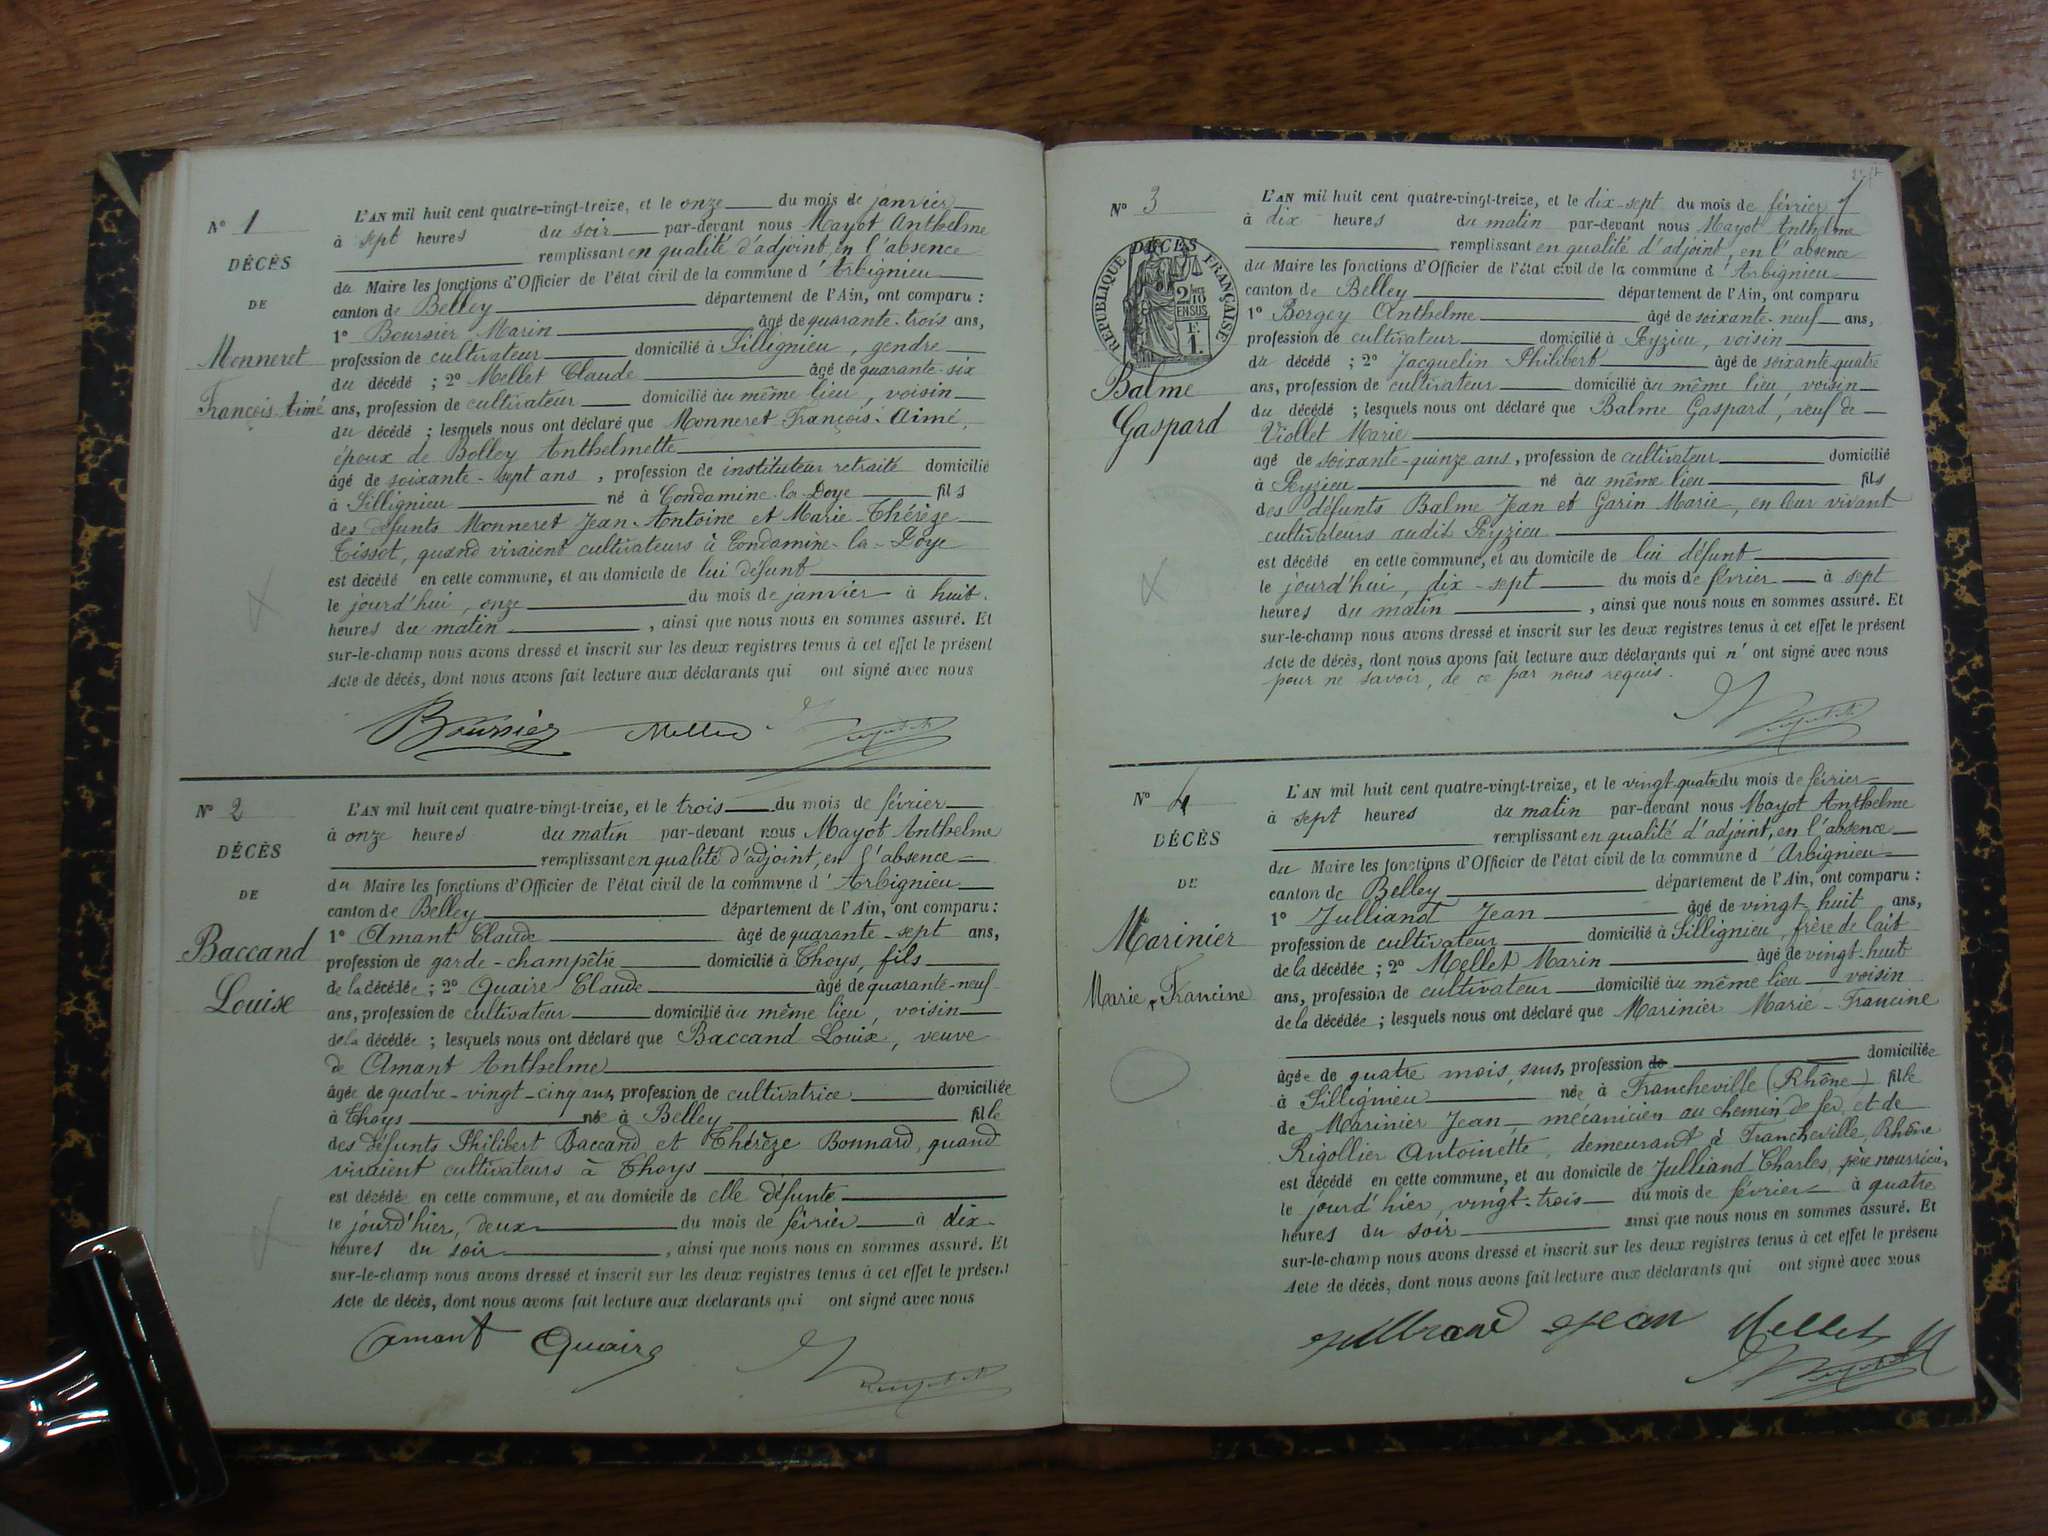 N° 1
DÉCÈS
DE
Monneret
François Aimé
L'AN mil huit cent quatre-vingt-treize, et le onze du mois de janvier
à sept heures du soir par-devant nous Mayot Anthelme
remplissant en qualité d'adjoint, en l'absence
du Maire les fonctions d'Officier de l'état civil de la commune d'Arbignieu
canton de Belley département de l'Ain, ont comparu :
1° Boursier Marin âgé de quarante-trois ans,
profession de cultivateur domicilié à Sillignieu, gendre
du décédé ; 2° Mellet Claude âgé de quarante-six
ans, profession de cultivateur domicilié au même lieu, voisin
du décédé ; lesquels nous ont déclaré que Monneret François-Aimé,
époux de Bolley Anthelmette
âgé de soixante-sept ans, profession de instituteur retraité domicilié
à Sillignieu né à Condamine-la-Doye fils
des défunts Monneret Jean-Antoine et Marie-Thérèze
Tissot, quand vivaient cultivateurs à Condamine-la-Doye
est décédé en cette commune, et au domicile de lui défunt
le jourd'hui, onze du mois de janvier à huit
heures du matin, ainsi que nous nous en sommes assuré. Et
sur-le-champ nous avons dressé et inscrit sur les deux registres tenus à cet effet le présent
Acte de décès, dont nous avons fait lecture aux déclarants qui ont signé avec nous
Boursier Mellet
N° 2
DÉCÈS
DE
Baccand
Louise
L'AN mil huit cent quatre-vingt-treize, et le trois du mois de février
à onze heures du matin par-devant nous Mayot Anthelme
remplissant en qualité d'adjoint, en l'absence
du Maire les fonctions d'Officier de l'état civil de la commune d'Arbignieu
canton de Belley département de l'Ain, ont comparu :
1° Amant Claude âgé de quarante-sept ans,
profession de garde-champêtre domicilié à Thoys, fils
de la décédée ; 2° Quaire Claude âgé de quarante-neuf
ans, profession de cultivateur domicilié au même lieu, voisin
de la décédée ; lesquels nous ont déclaré que Baccand Louise, veuve
de Amant Anthelme
âgée de quatre-vingt-cinq ans, profession de cultivatrice domiciliée
à Thoys née à Belley fille
des défunts Philibert Baccand et Thérèze Bonnard, quand
vivaient cultivateurs à Thoys
est décédée en cette commune, et au domicile de elle défunte
le jourd'hier, deux du mois de février à dix
heures du soir, ainsi que nous nous en sommes assuré. Et
sur-le-champ nous avons dressé et inscrit sur les deux registres tenus à cet effet le présent
Acte de décès, dont nous avons fait lecture aux déclarants qui ont signé avec nous
Amant Quaire
N° 3
DÉCÈS
RÉPUBLIQUE FRANÇAISE
2/10 EN SUS
F. 1.
Balme
Gaspard
L'AN mil huit cent quatre-vingt-treize, et le dix-sept du mois de février
à dix heures du matin par-devant nous Mayot Anthelme
remplissant en qualité d'adjoint, en l'absence
du Maire les fonctions d'Officier de l'état civil de la commune d'Arbignieu
canton de Belley département de l'Ain, ont comparu
1° Borgey Anthelme âgé de soixante-neuf ans,
profession de cultivateur domicilié à Peyzieu, voisin
du décédé ; 2° Jacquelin Philibert âgé de soixante quatre
ans, profession de cultivateur domicilié au même lieu, voisin
du décédé ; lesquels nous ont déclaré que Balme Gaspard, veuf de
Viollet Marie
agé de soixante-quinze ans, profession de cultivateur domicilié
à Peyzieu né au même lieu fils
des défunts Balme Jean et Garin Marie, en leur vivant
cultivateurs audit Peyzieu
est décédé en cette commune, et au domicile de lui défunt
le jourd'hui, dix-sept du mois de février à sept
heures du matin, ainsi que nous nous en sommes assuré. Et
sur-le-champ nous avons dressé et inscrit sur les deux registres tenus à cet effet le présent
Acte de décès, dont nous avons fait lecture aux déclarants qui n'ont signé avec nous
pour ne savoir, de ce par nous requis.
N° 4
DÉCÈS
DE
Marinier
Marie-Francine
L'AN mil huit cent quatre-vingt-treize, et le vingt-quatre du mois de février
à sept heures du matin par-devant nous Mayot Anthelme
remplissant en qualité d'adjoint, en l'absence
du Maire les fonctions d'Officier de l'état civil de la commune d'Arbignieu
canton de Belley département de l'Ain, ont comparu :
1° Julliand Jean âgé de vingt huit ans,
profession de cultivateur domicilié à Sillignieu, frère de lait
de la décédée ; 2° Mellet Marin âgé de vingt-huit
ans, profession de cultivateur domicilié au même lieu voisin
de la décédée ; lesquels nous ont déclaré que Marinier Marie-Francine
âgée de quatre mois, sans profession de domiciliée
à Sillignieu née à Francheville (Rhône) fille
de Marinier Jean, mécanicien au chemin de fer et de
Rigollier Antoinette, demeurant à Francheville, Rhône
est décédée en cette commune, et au domicile de Julliand Charles, père nourricier,
le jourd'hier, vingt-trois du mois de février à quatre
heures du soir ainsi que nous nous en sommes assuré. Et
sur-le-champ nous avons dressé et inscrit sur les deux registres tenus à cet effet le présent
Acte de décès, dont nous avons fait lecture aux déclarants qui ont signé avec nous
Julliand Jean Mellet M